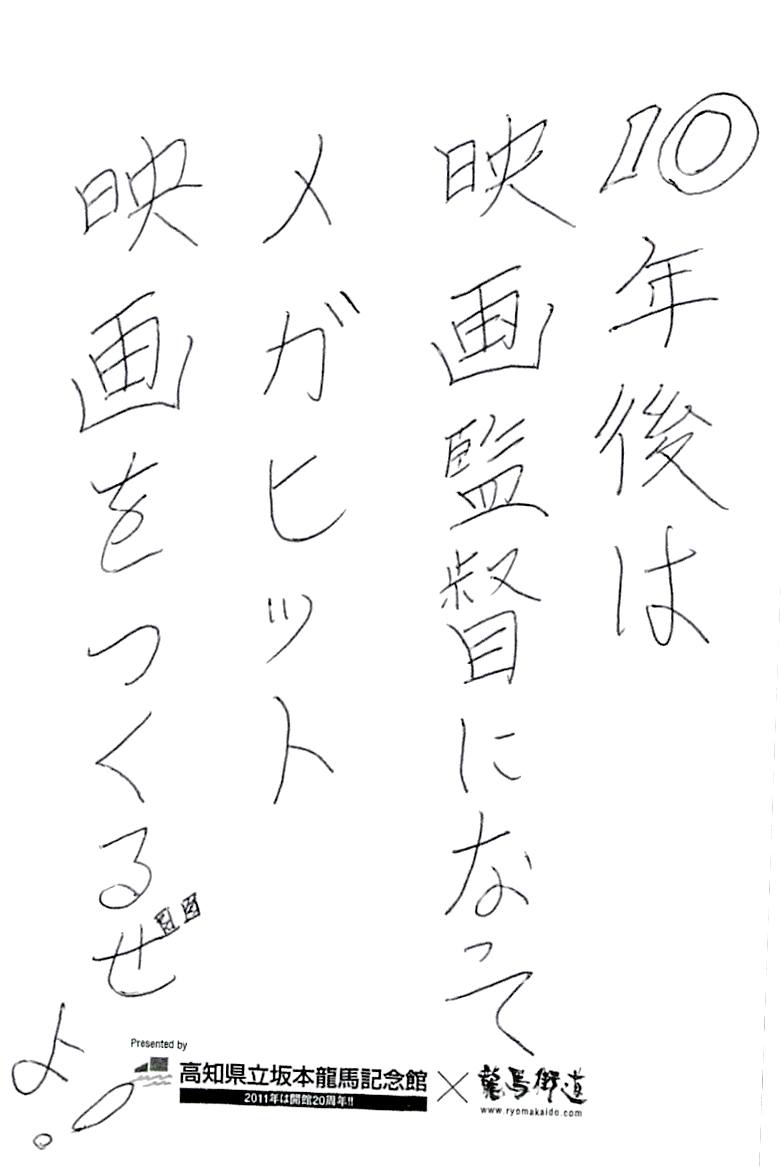 10年後は
映画監督になって
メガヒット
映画をつくるぜ
よ!
Presented by
高知県立坂本龍馬記念館×龍馬街道
2011年は開館20周年!!
www.ryomakaido.com